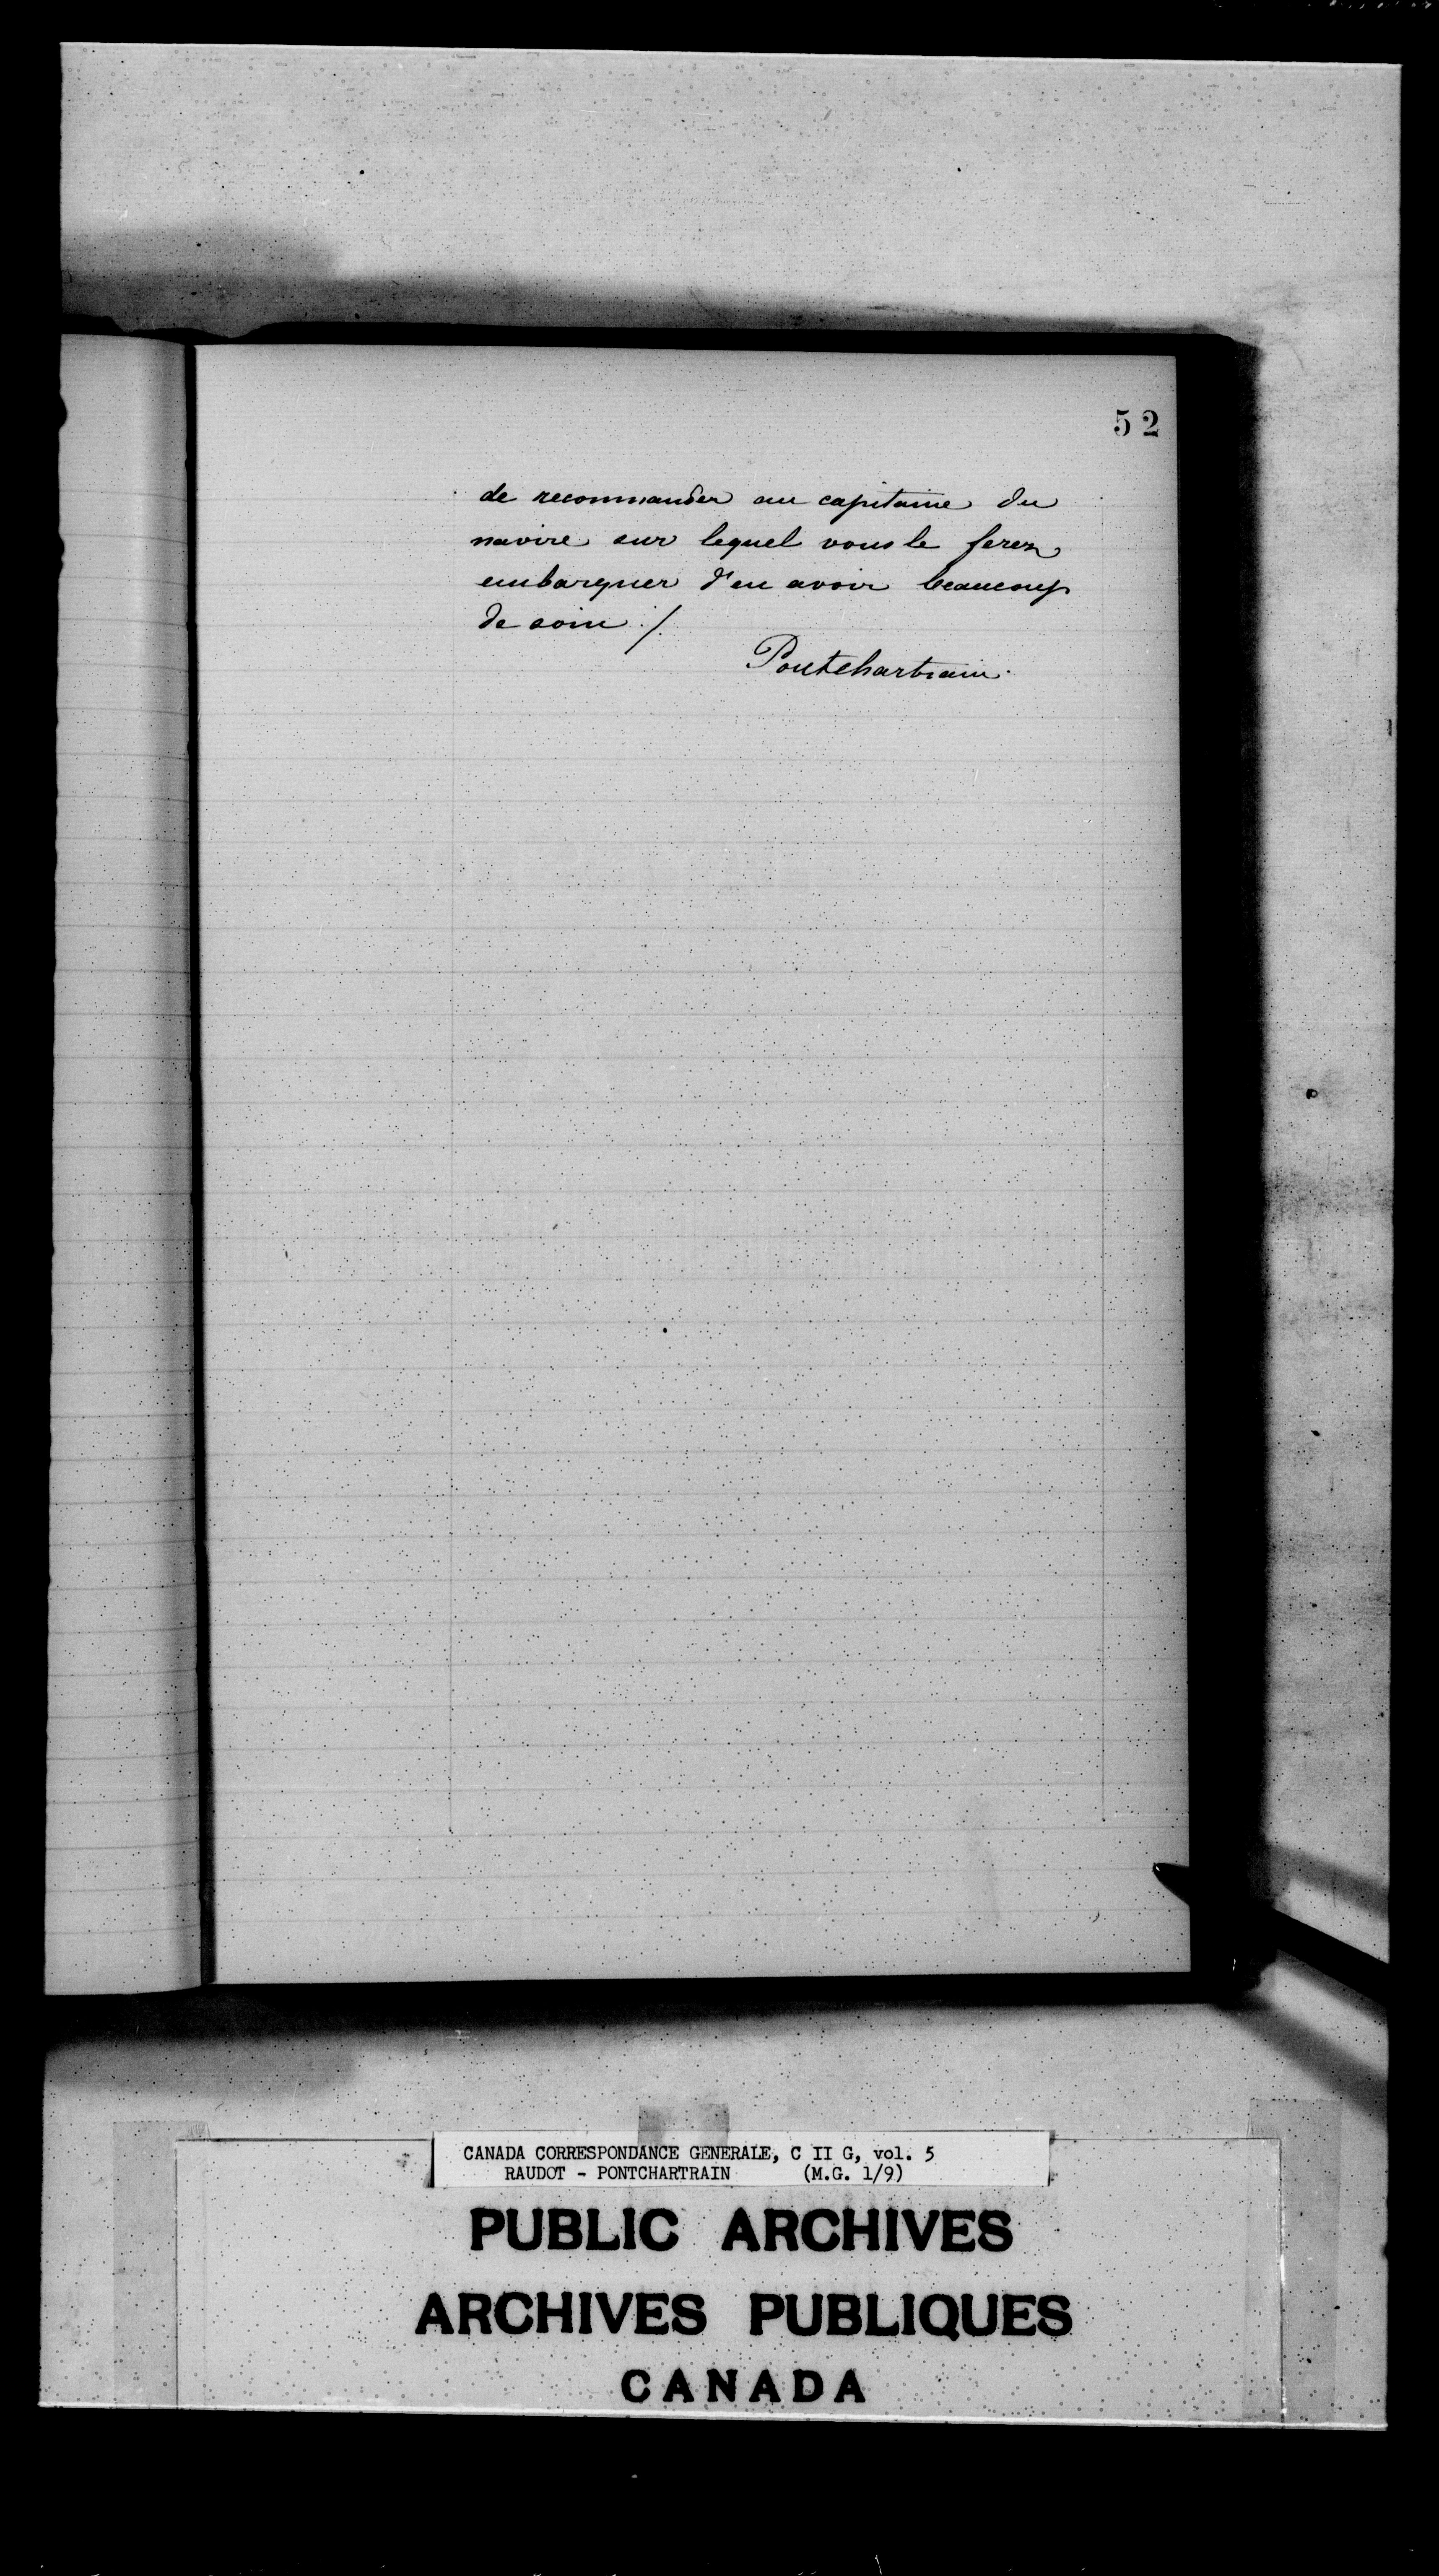 52
de recommander au capitaine du
navire sur lequel vous le ferez
embarquer d'en avoir beaucoup
de soin ./.
Pontchartrain.
CANADA CORRESPONDANCE GENERALE, C II G, vol. 5
RAUDOT - PONTCHARTRAIN (M.G. 1/9)
PUBLIC ARCHIVES
ARCHIVES PUBLIQUES
CANADA